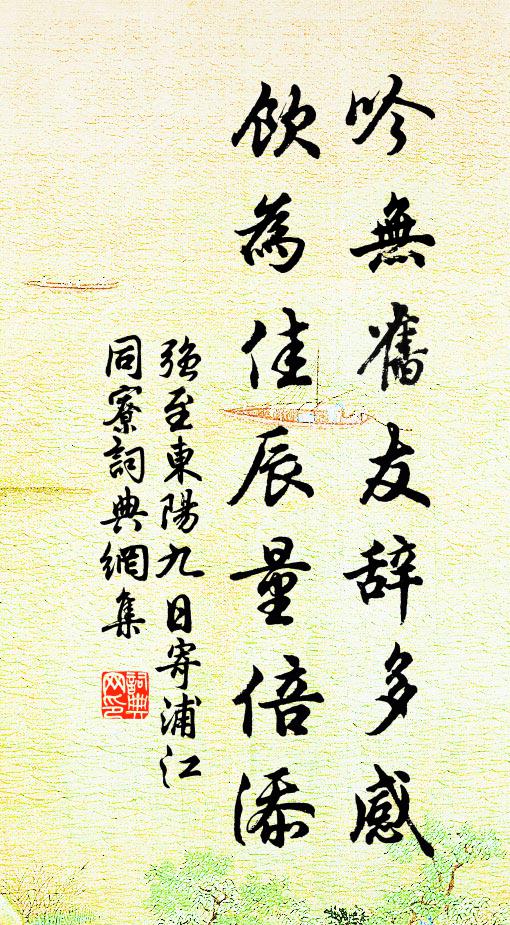 吟無舊友辞多感
飲為佳辰量倍添
強至東陽九日寄浦江
同寮詞典網集
詞典
网印